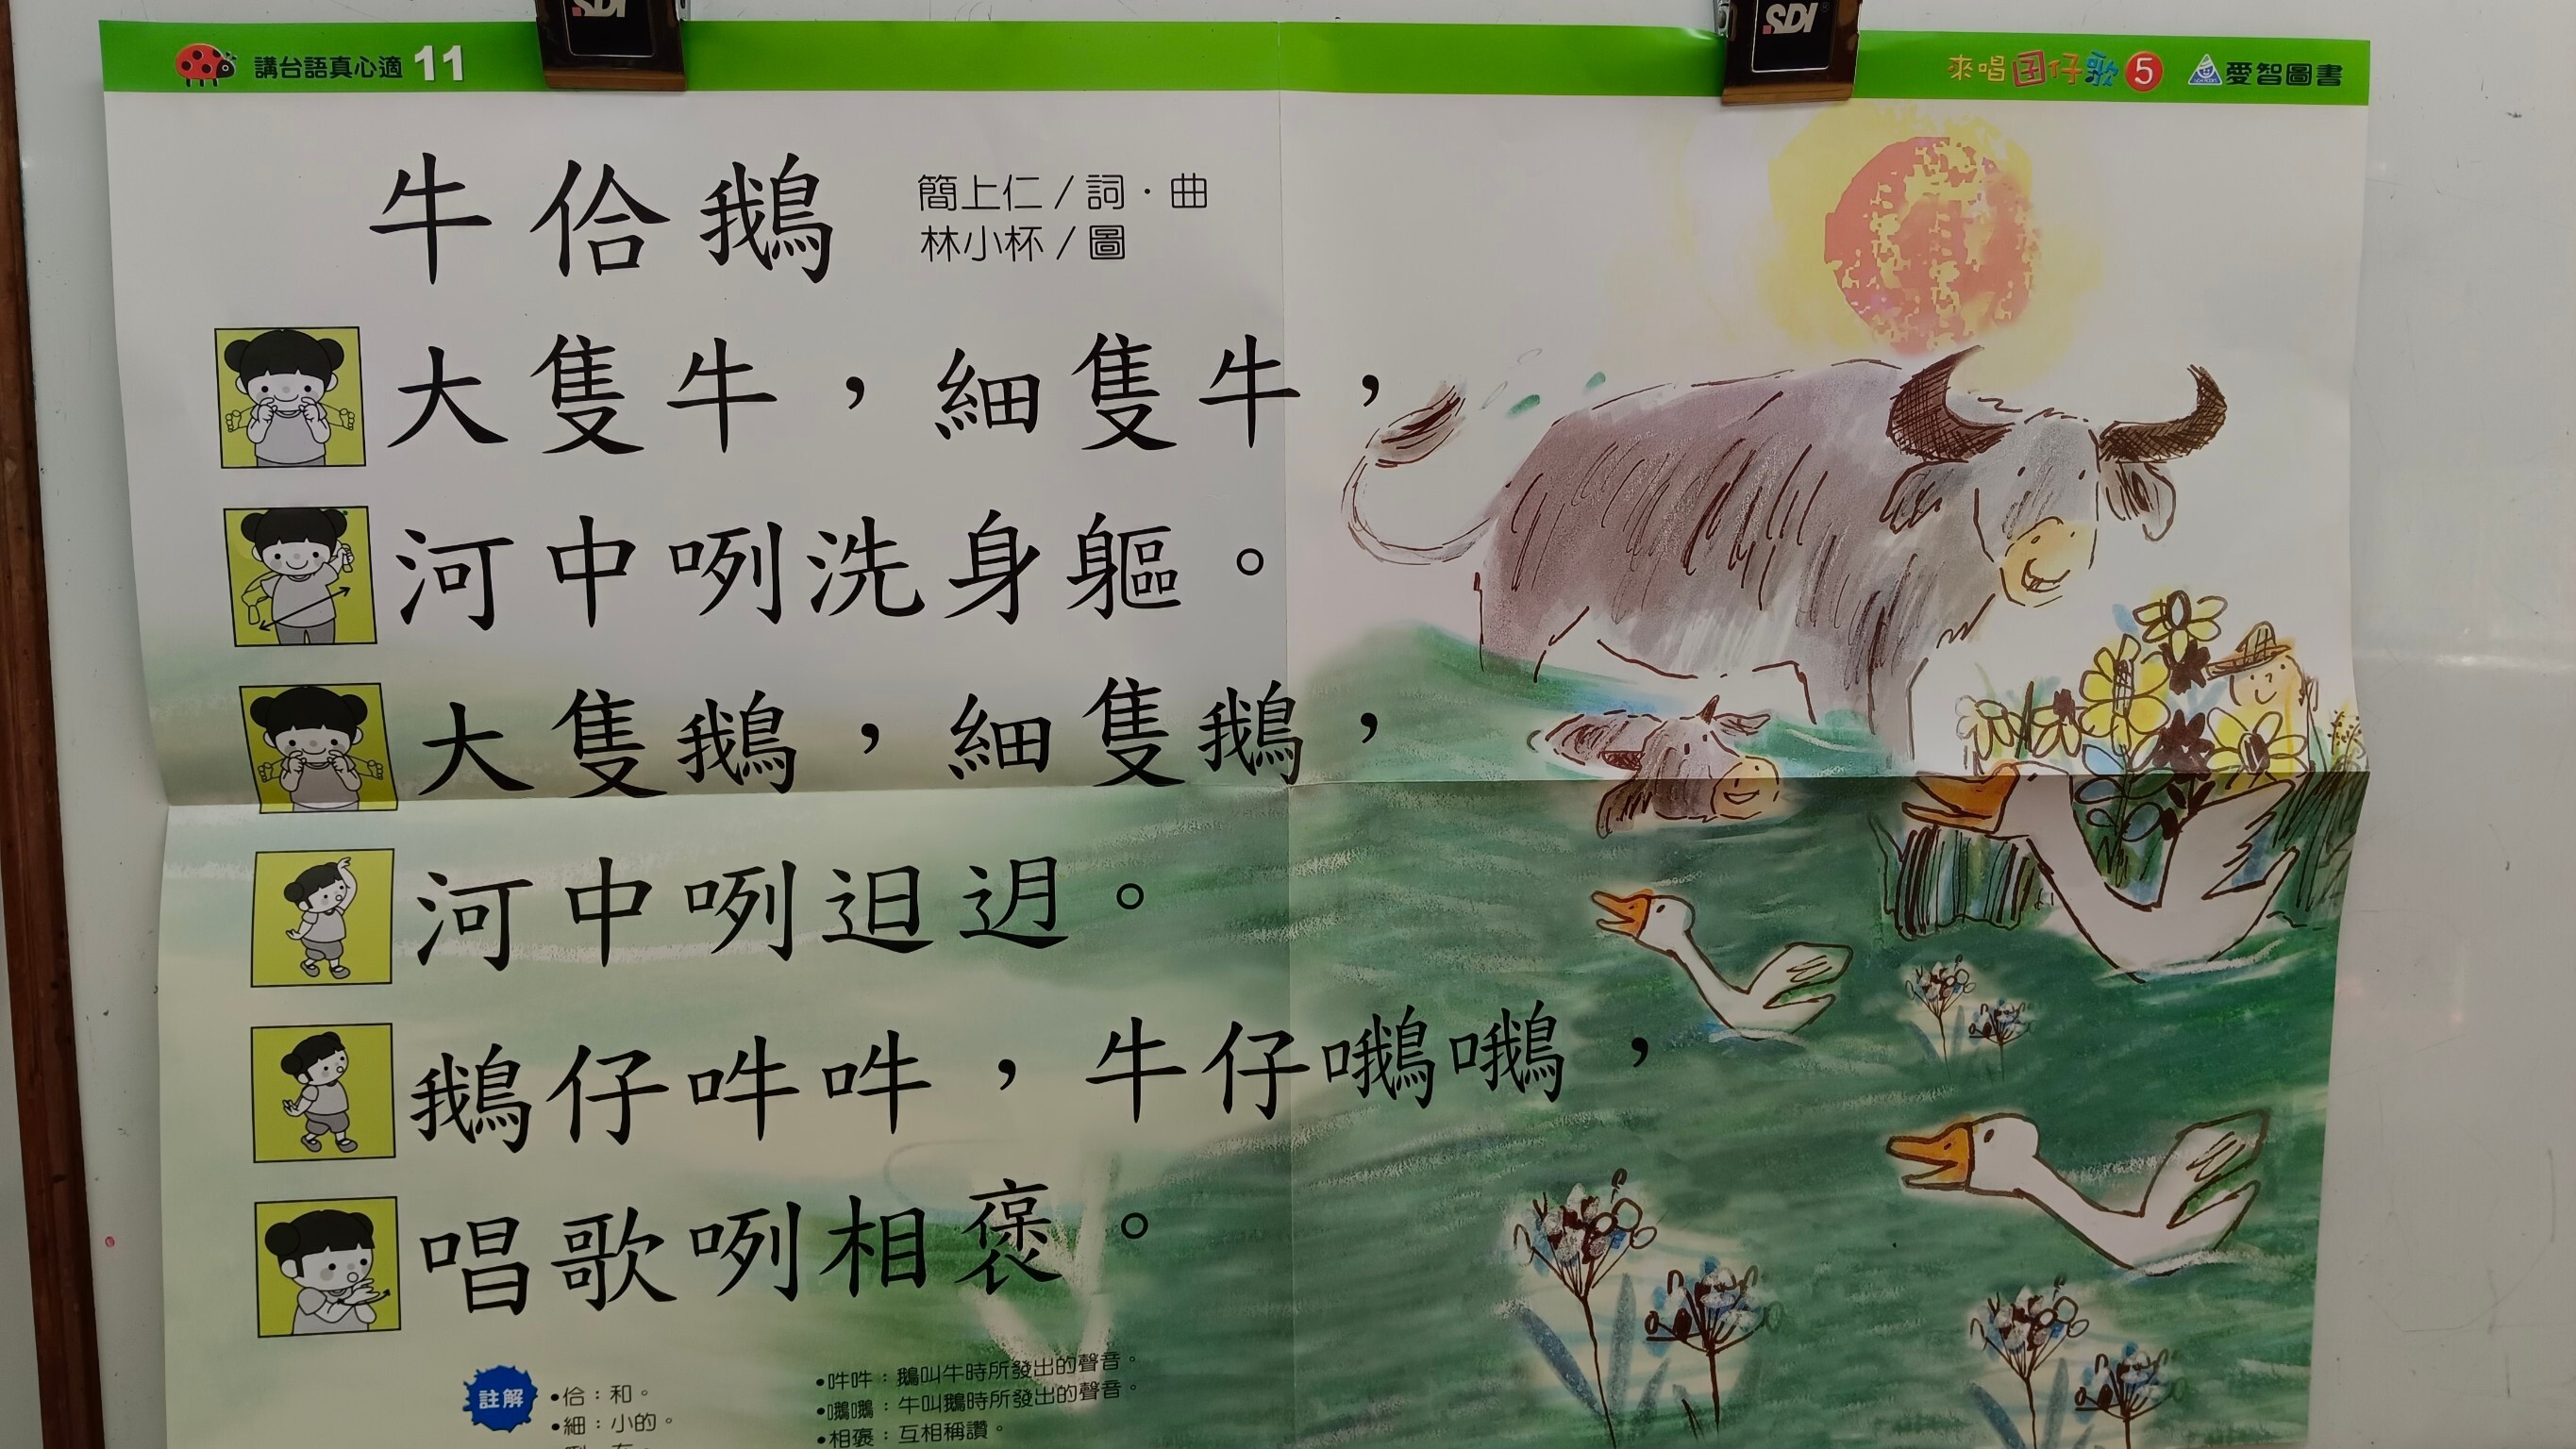 SDI
SDI
講台語真心適 11
來唱囝仔歌 5 愛智圖書
牛佮鵝
簡上仁／詞·曲
林小杯／圖
大隻牛，細隻牛，
河中咧洗身軀。
大隻鵝，細隻鵝，
河中咧𨑨迌。
鵝仔吽吽，牛仔𪃿𪃿，
唱歌咧相褒。
註解
•佮：和。
•細：小的。
•吽吽：鵝叫牛時所發出的聲音。
•𪃿𪃿：牛叫鵝時所發出的聲音。
•相褒：互相稱讚。